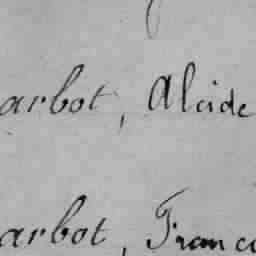 arbot, Alcide
arbot, Franco